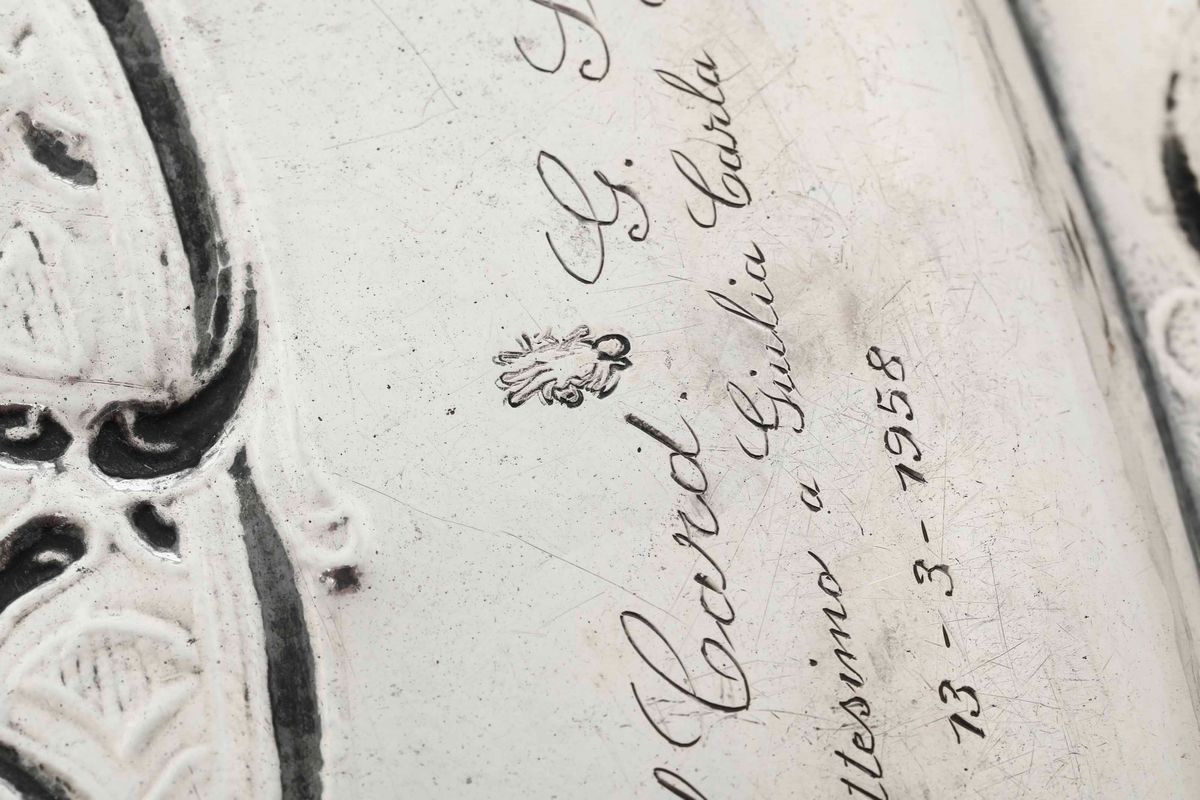 Card. G.
ttesimo a Giulia Carla
13-3-1958